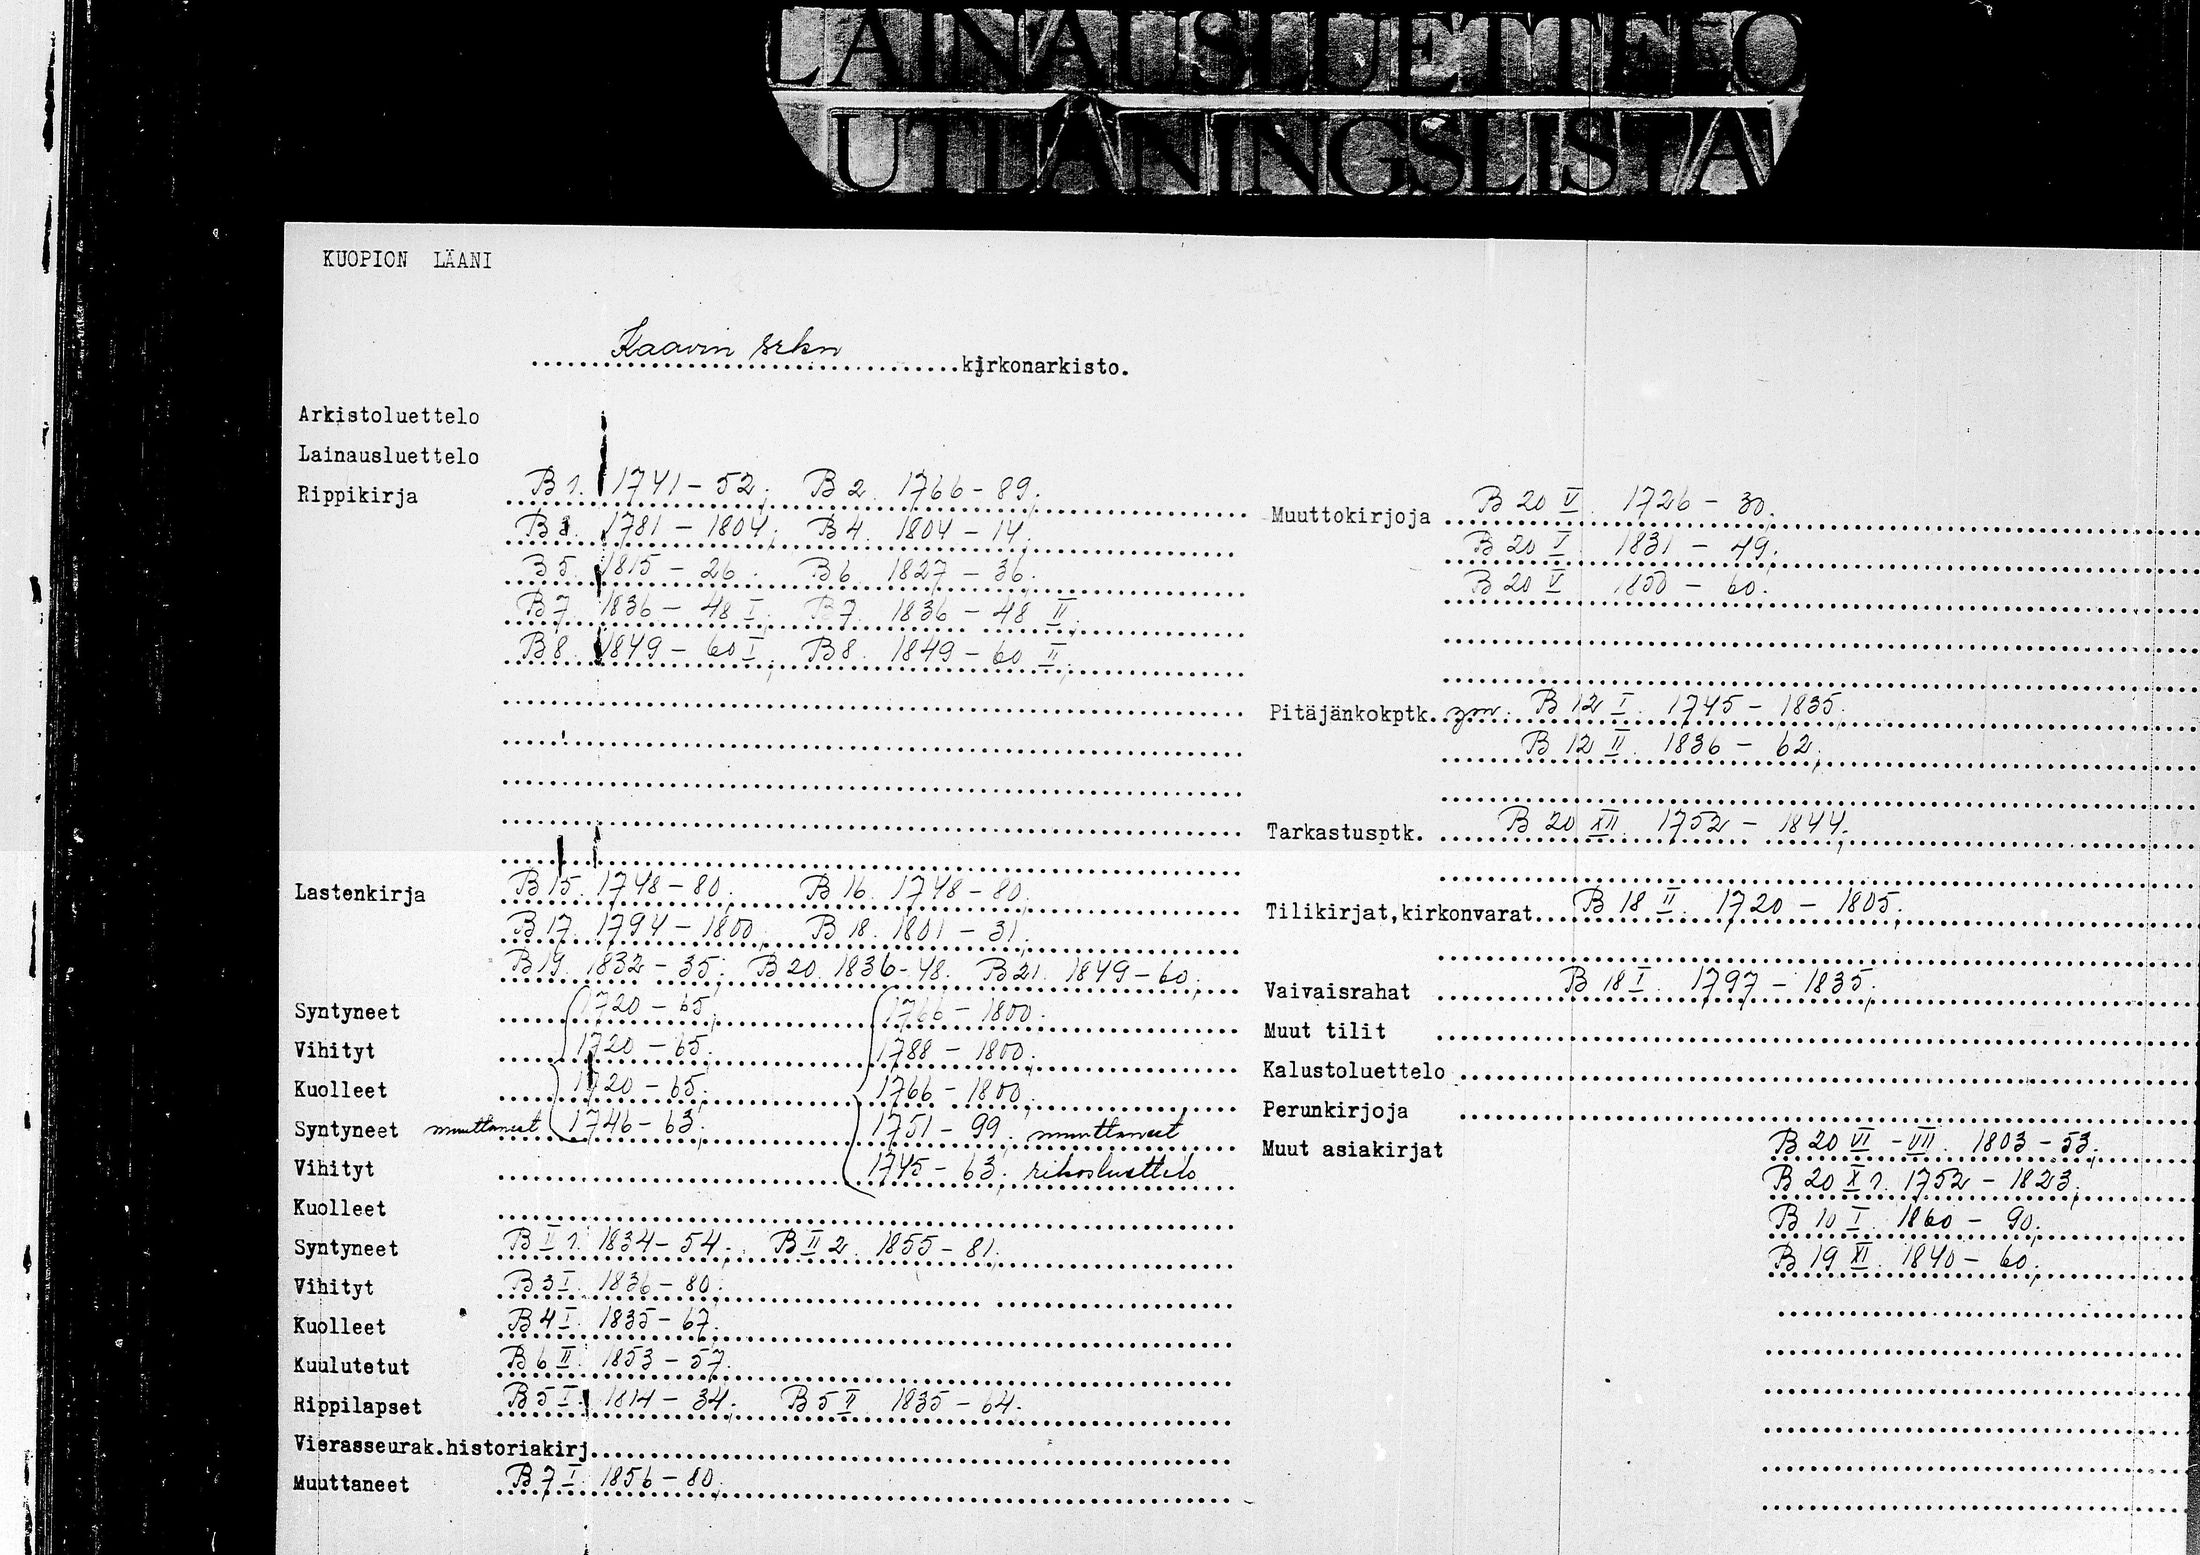 LAINAUSLUETTELO
UTLÅNINGSLISTA
KUOPION LÄANI
Kaavin srkn kirkonarkisto.
Arkistoluettelo
Lainausluettelo
Rippikirja B 1. 1741 - 52; B 2. 1766 - 89;
B 3. 1781 - 1804; B 4. 1804 - 14;
B 5. 1815 - 26. B 6. 1827 - 36;
B 7. 1836 - 48 I; B 7. 1836 - 48 II;
B 8. 1849 - 60 I; B 8. 1849 - 60 II;
Lastenkirja B 15. 1748 - 80; B 16. 1748 - 80;
B 17. 1794 - 1800; B 18. 1801 - 31;
B 19. 1832 - 35; B 20. 1836 - 48. B 21. 1849 - 60;
Syntyneet 1720 - 65; 1766 - 1800.
Vihityt 1720 - 65; 1788 - 1800;
Kuolleet 1720 - 65; 1766 - 1800;
Syntyneet muuttaneet 1746 - 63; 1751 - 99; muuttaneet
Vihityt 1745 - 63; rikosluettelo
Kuolleet
Syntyneet B II 1. 1834 - 54; B II 2. 1855 - 81.
Vihityt B 3 I. 1836 - 80;
Kuolleet B 4 I. 1835 - 67.
Kuulutetut B 6 II. 1853 - 57.
Rippilapset B 5 I. 1814 - 34; B 5 II. 1835 - 64.
Vierasseurak.historiakirj
Muuttaneet B 7 I. 1856 - 80;
Muuttokirjoja B 20 V. 1726 - 30;
B 20 V. 1831 - 49;
B 20 V 1850 - 60.
Pitäjänkokptk. ym. B 12 I. 1745 - 1835;
B 12 II. 1836 - 62;
Tarkastusptk. B 20 XII. 1752 - 1844;
Tilikirjat,kirkonvarat. B 18 II. 1720 - 1805;
Vaivaisrahat B 18 I. 1797 - 1835;
Muut tilit
Kalustoluettelo
Perunkirjoja
Muut asiakirjat B 20 VI - VII. 1803 - 53;
B 20 X 1. 1752 - 1823;
B 10 I. 1860 - 90;
B 19 XI. 1840 - 60;